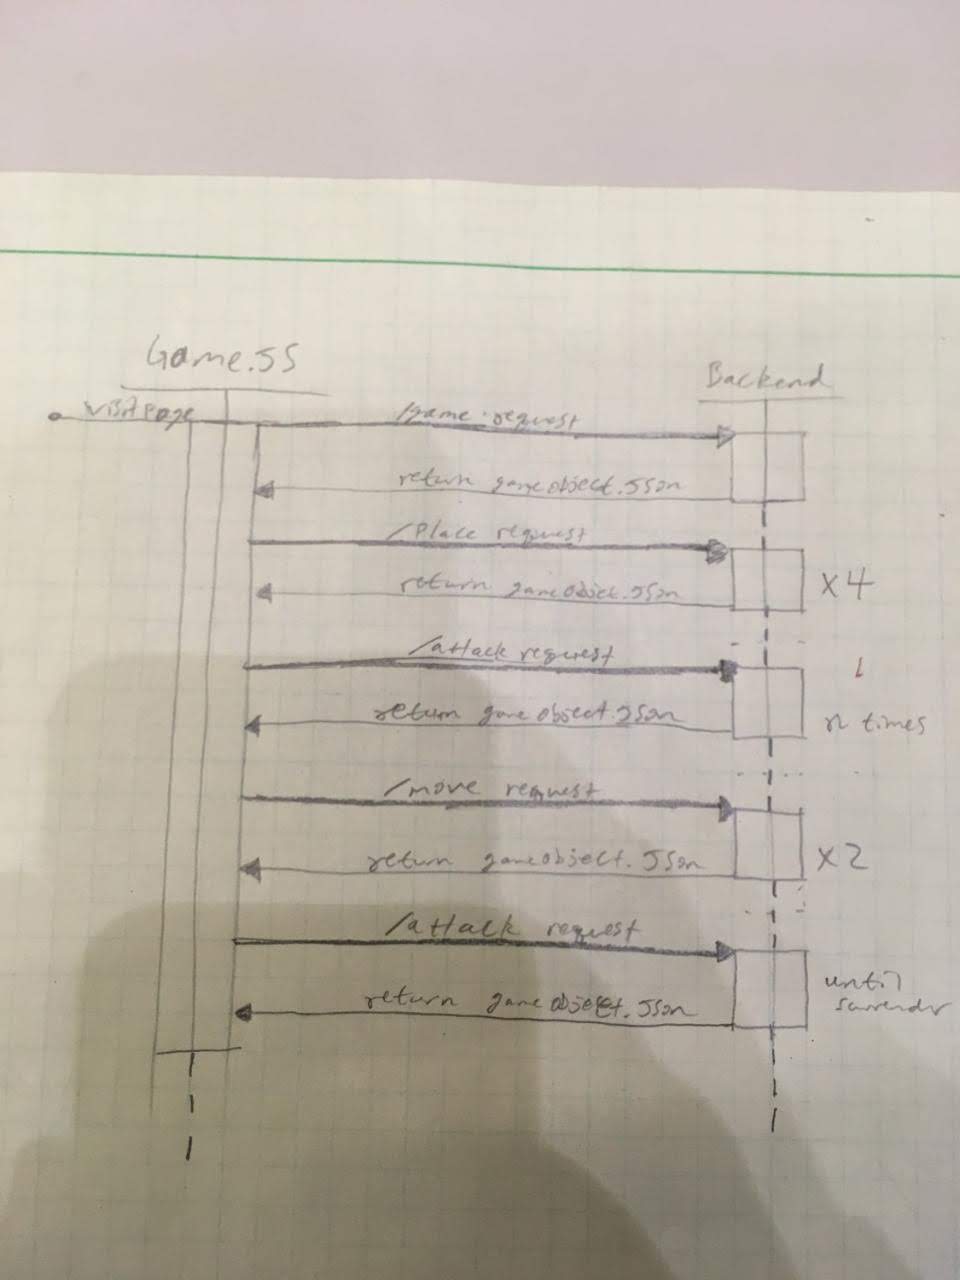 Game.JS
Backend
visit page
/game request
return gameobject.Json
/Place request
return gameobject.Json
x4
/attack request
return gameobject.Json
n times
/move request
return gameobject.Json
x2
/attack request
return gameobject.Json
until
surrender